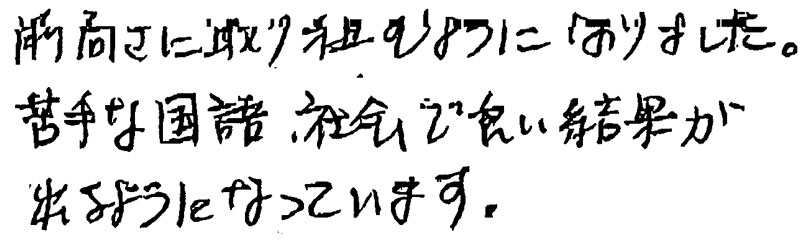 前向きに取り組むようになりました。
苦手な国語、社会で良い結果が
出るようになっています。